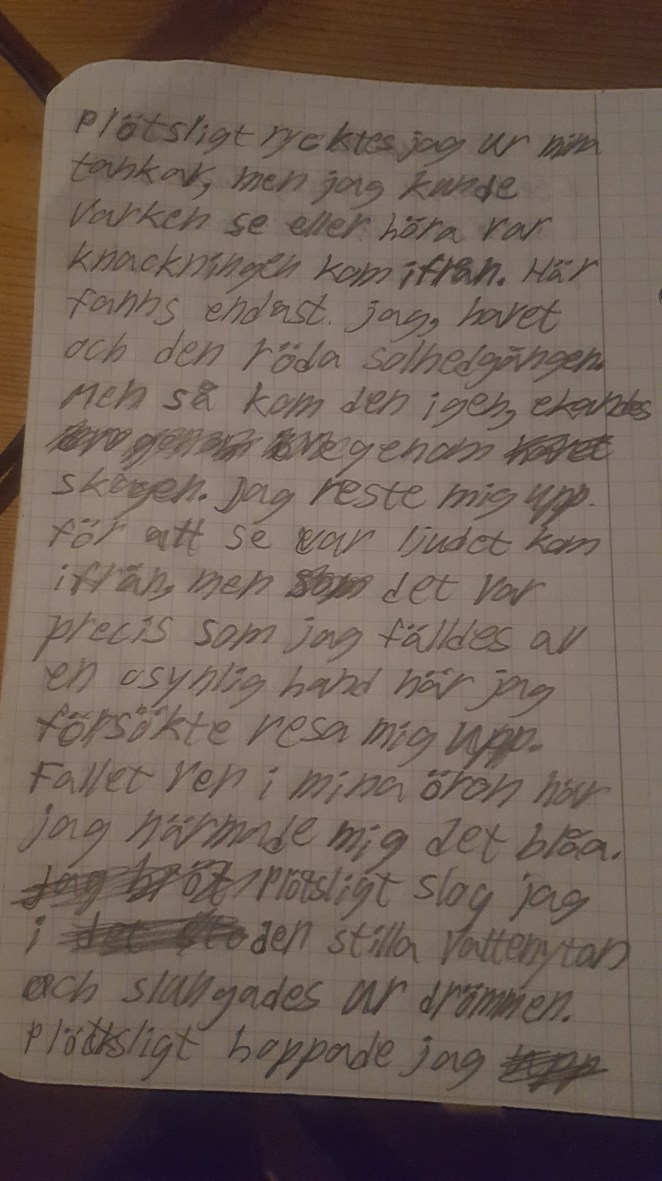 Plötsligt rycktes jag ur min
tankar, men jag kunde
varken se eller höra var
knackningen kom ifrån. Här
fanns endast. jag, havet
och den röda solnedgången.
Men så kom den igen, ekandes
genom
skogen. Jag reste mig upp.
för att se var ljudet kom
ifrån, men det var
precis som jag fälldes av
en osynlig hand när jag
försökte resa mig upp.
Fallet ven i mina öron när
jag närmade mig det blåa.
Plötsligt slog jag
i den stilla vattenytan
och slungades ur drömmen.
Plötsligt hoppade jag